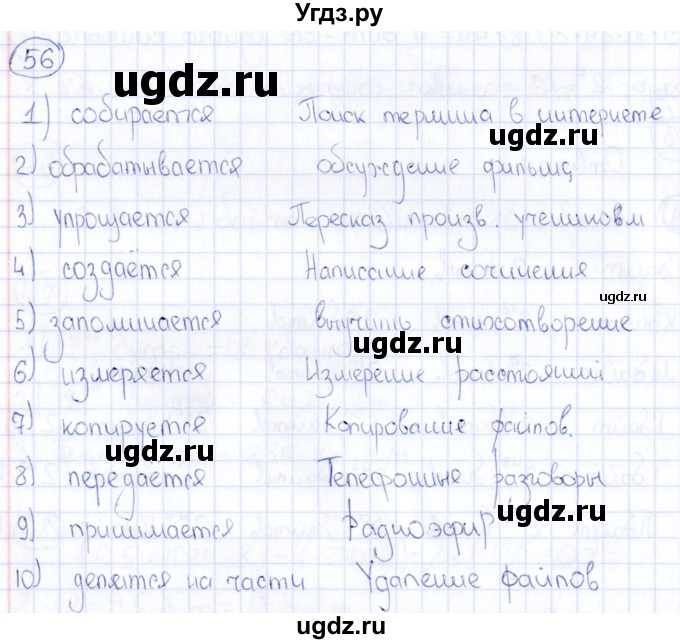 Угдз.ру
56
1) собирается Поиск термина в интернете
2) обрабатывается обсуждение фильма
3) упрощается Пересказ произв. учеником
4) создаётся Написание сочинения
5) запоминается выучить стихотворение
6) измеряется Измерение расстояний
7) копируется Копирование файлов.
8) передаётся Телефонные разговоры
9) принимается Радиоэфир
10) делятся на части Удаление файлов
ugdz.ru
ugdz.ru
ugdz.ru
ugdz.ru
ugdz.ru
ugdz.ru
ugdz.ru
ugdz.ru
ugdz.ru
ugdz.ru